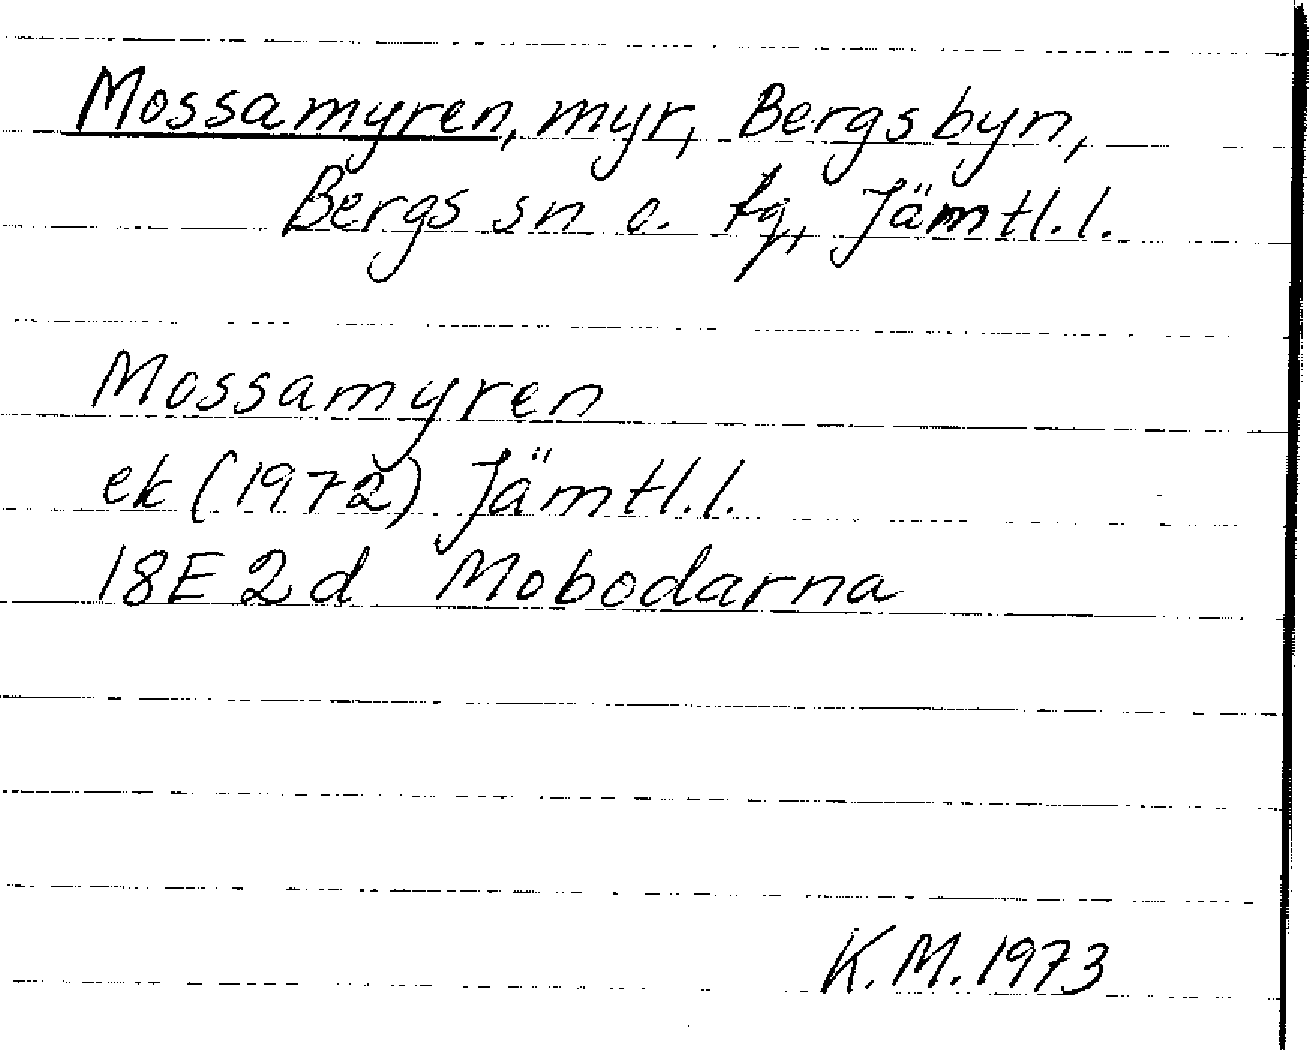 Mossamyren, myr, Bergsbyn,
Bergs sn o. tg, Jämtl.l.
Mossamyren
ek (1972) Jämtl.l.
18E 2d Mobodarna
K.M. 1973